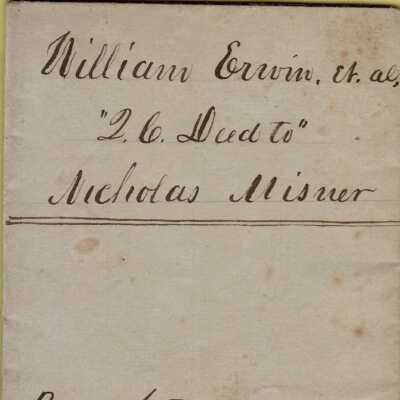 William Erwin, et. al,
"Q. C. Deed to"
Nicholas Misner